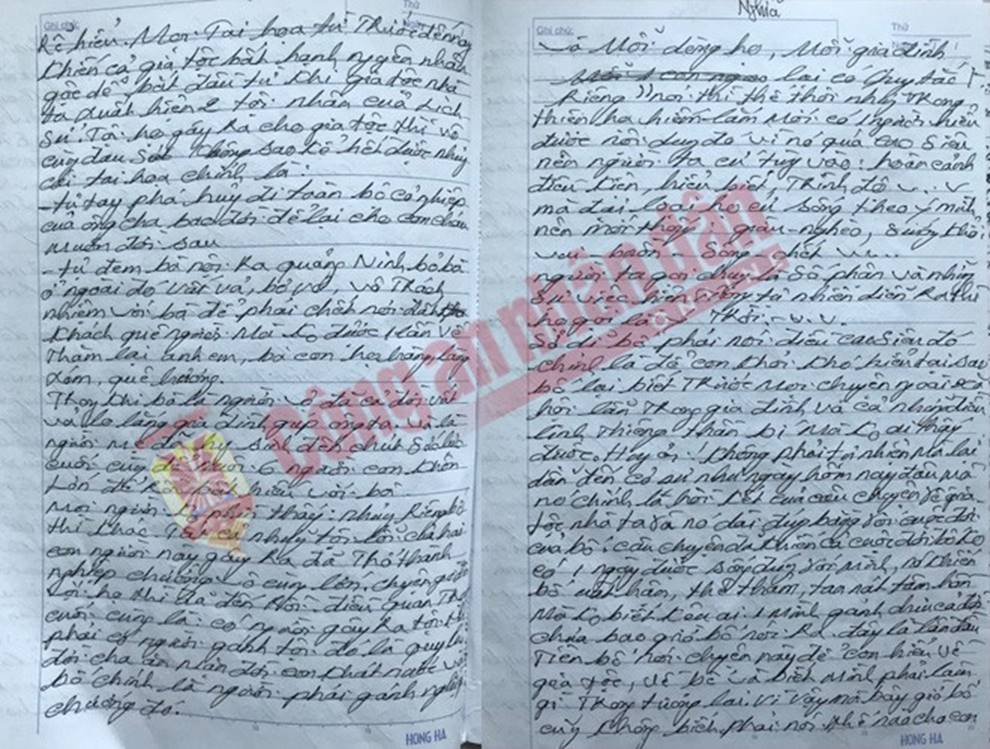 Ghi chú: Thứ
kể hiểu. Mọi Tai họa từ Trước đến nay
khiến cả gia tộc bất hạnh nguyên nhân
gốc để bắt đầu từ khi gia tộc nhà
ta xuất hiện 2 tội nhân của Lịch
Sử. Tội họ gây Ra cho gia tộc thì vô
cùng đau sót không sao kể hết được nhưng
tai họa chính là:
- tự tay phá hủy đi toàn bộ cơ nghiệp
của ông cha bao đời để lại cho con cháu
muôn đời sau
- tự đem bà nội Ra quảng Ninh bỏ bà
ở ngoài đó vất vả, bơ vơ, vô Trách
nhiệm với bà để phải chết nơi đất
khách quê người mà được Lần về
Thăm lại anh em, bà con họ hàng, làng
xóm, quê hương.
Trong khi bà là người vợ đã cả đời vất
vả lo lắng gia đình giúp ông ta và là
người mẹ đã hy sinh đến chút sức lực
cuối cùng để nuôi 6 người con khôn
lớn
Mọi người thấy nhưng Riêng bố
thì khác Tất cả những tội lỗi cả hai
con người này gây Ra đã Thở thành
nghiệp chướng vô cùng lớn, chuyện
Lợi họ thì đã đến Hồi điều quan Trọng
cuối cùng là: có người gây Ra tội thì
phải có người gánh tội đó là quy luật
đời cha ăn mặn đời con khát nước và
bố chính là người phải gánh nghiệp
chướng đó.
HONG HA
Nghĩa
Thứ
và Mỗi dòng họ, Mỗi gia đình
lại có quy tắc
Riêng "nói thì thế thôi nhưng Trong
thiên hạ hiếm lắm Mới có 1 người hiểu
được nội dung đó vì nó quá cao siêu
nên người ta cứ tùy vào: hoàn cảnh
điều kiện, hiểu biết, Trình độ v...v
mà đại loại họ cứ sống theo ý mình
nên mới thấy giàu-nghèo, sướng khổ
vui buồn sống chết v...
người ta gọi chung là Số phận và những
sự việc hiện tượng tự nhiên diễn Ra thì
họ gọi là Trời - v.v.
Sở dĩ bố phải nói điều cao siêu đó
chính là để con khỏi khó hiểu tại sao
bố lại biết Trước mọi chuyện ngoài xã
hội lẫn Trong gia đình và cả những điều
linh Thiêng thần bí mà ko ai thấy
được. Không phải tự nhiên mà lại
dẫn đến cơ sự như ngày hôm nay đâu mà
nó chính là hồi kết của câu chuyện về gia
tộc nhà ta và nó dài đúng bằng với cuộc đời
của bố. câu chuyện đã khiến cả cuộc đời bố ko
có 1 ngày được sống đúng với mình, nó khiến
bố uất hận, thê thảm, tan nát tâm hồn
mà ko biết kêu ai. 1 Mình gánh chịu cả đời
chưa bao giờ bố nói Ra. đây là lần đầu
Tiên bố nói chuyện này để con hiểu về
gia tộc, về bố và biết Mình phải làm
gì Trong tương lai. Vì vậy mà bây giờ bố
cũng không biết phải nói thế nào cho con
HONG HA
Công an nhân dân